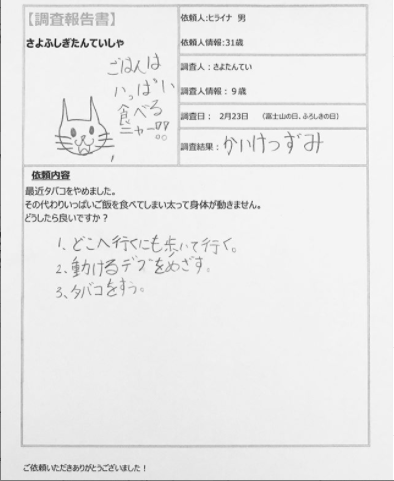 【調査報告書】
さよふしぎたんていしゃ
ごはんは
いっぱい
食べる
ニャー!!
依頼人:ヒライナ 男
依頼人情報:31歳
調査人：さよたんてい
調査人情報：９歳
調査日： 2月23日 （富士山の日、ふろしきの日）
調査結果：かいけつずみ
依頼内容
最近タバコをやめました。
その代わりいっぱいご飯を食べてしまい太って身体が動きません。
どうしたら良いですか？
1、どこへ行くにも歩いて行く。
2、動けるデブをめざす。
3、タバコをすう。
ご依頼いただきありがとうございました！